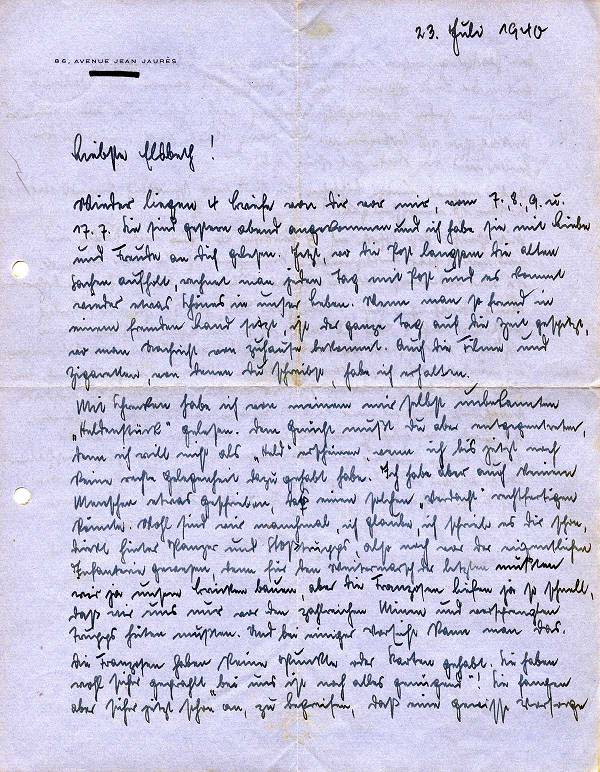 23. Juli 1940
86, AVENUE JEAN JAURÈS
Liebste Elsbeth!
Wieder liegen 4 Briefe von Dir vor mir, vom 7., 8., 9. u.
17.7. Sie sind gestern abend angekommen und ich habe sie mit Liebe
und Freude an Dich gelesen. Jetzt, wo die Post langsam die alten
Sachen aufholt, rechnet man jeden Tag mit Post und es kommt
wieder etwas Schönes in unser Leben. Wenn man so fremd in
einem fremden Land sitzt, ist der ganze Tag auf die Zeit gespitzt,
wo man Nachricht von zuhause bekommt. Auch die Filme und
Zigaretten, von denen Du schreibst, habe ich erhalten.
Mit Schrecken habe ich von meinem mir selbst unbekannten
„Heldenstück“ gelesen. Dem Gerücht mußt Du aber entgegentreten,
denn ich will nicht als „Held“ erscheinen, wenn ich bis jetzt noch
keine rechte Gelegenheit dazu gehabt habe. Ich habe aber auch keinem
Menschen etwas geschrieben, daß einen solchen „Verdacht“ rechtfertigen
könnte. Wohl sind wir manchmal, ich glaube, ich schrieb es Dir schon,
direkt hinter Panzer und Stoßtrupps, also noch vor der eigentlichen
Infanterie gewesen, denn für den Weitermarsch der letzten mußten
wir ja unsere Brücken bauen, aber die Franzosen liefen ja so schnell,
daß wir uns nur vor den zahlreichen Minen und versprengten
Trupps hüten mußten. Und bei einiger Vorsicht kann man das.
Die Franzosen haben keine Punkte oder Karten gehabt. Sie haben
wohl sicher geprahlt „bei uns ist noch alles genügend“! Sie fangen
aber sicher jetzt schon an, zu begreifen, daß eine gewisse Vorsorge